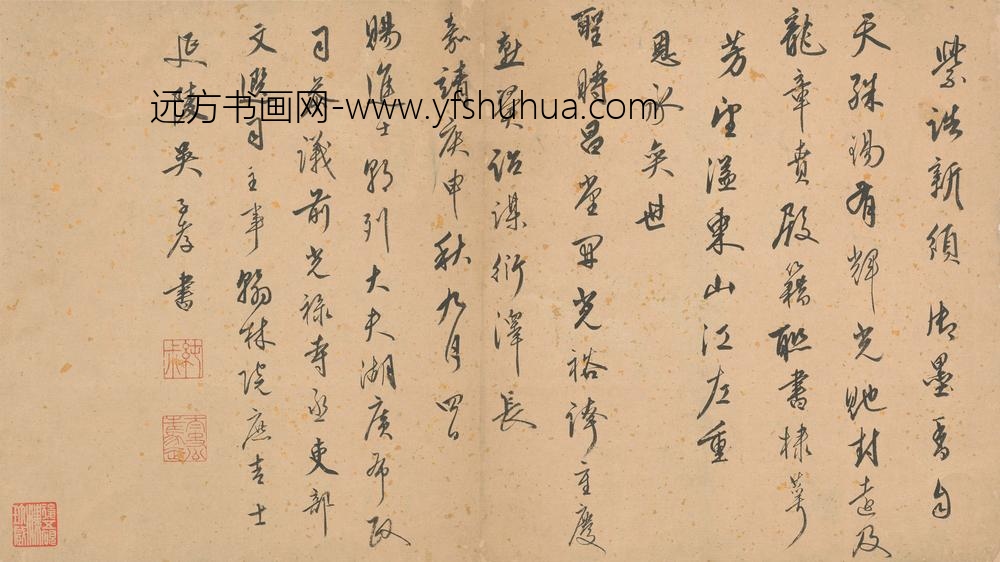 紫誥新頒 御墨香自
天殊錫有輝光貤封遠及
龍章賁殿籍聯書棣萼
芳望溢東山江左重
恩承奕世
聖時昌堂開光裕誇重慶
燕翼詒謀衍澤長
嘉靖庚申秋九月四日
賜進士朝列大夫湖廣布政
司參議前光祿寺丞吏部
文選司主事翰林院庶吉士
延陵吳子孝書
远方书画网-www.yfshuhua.com